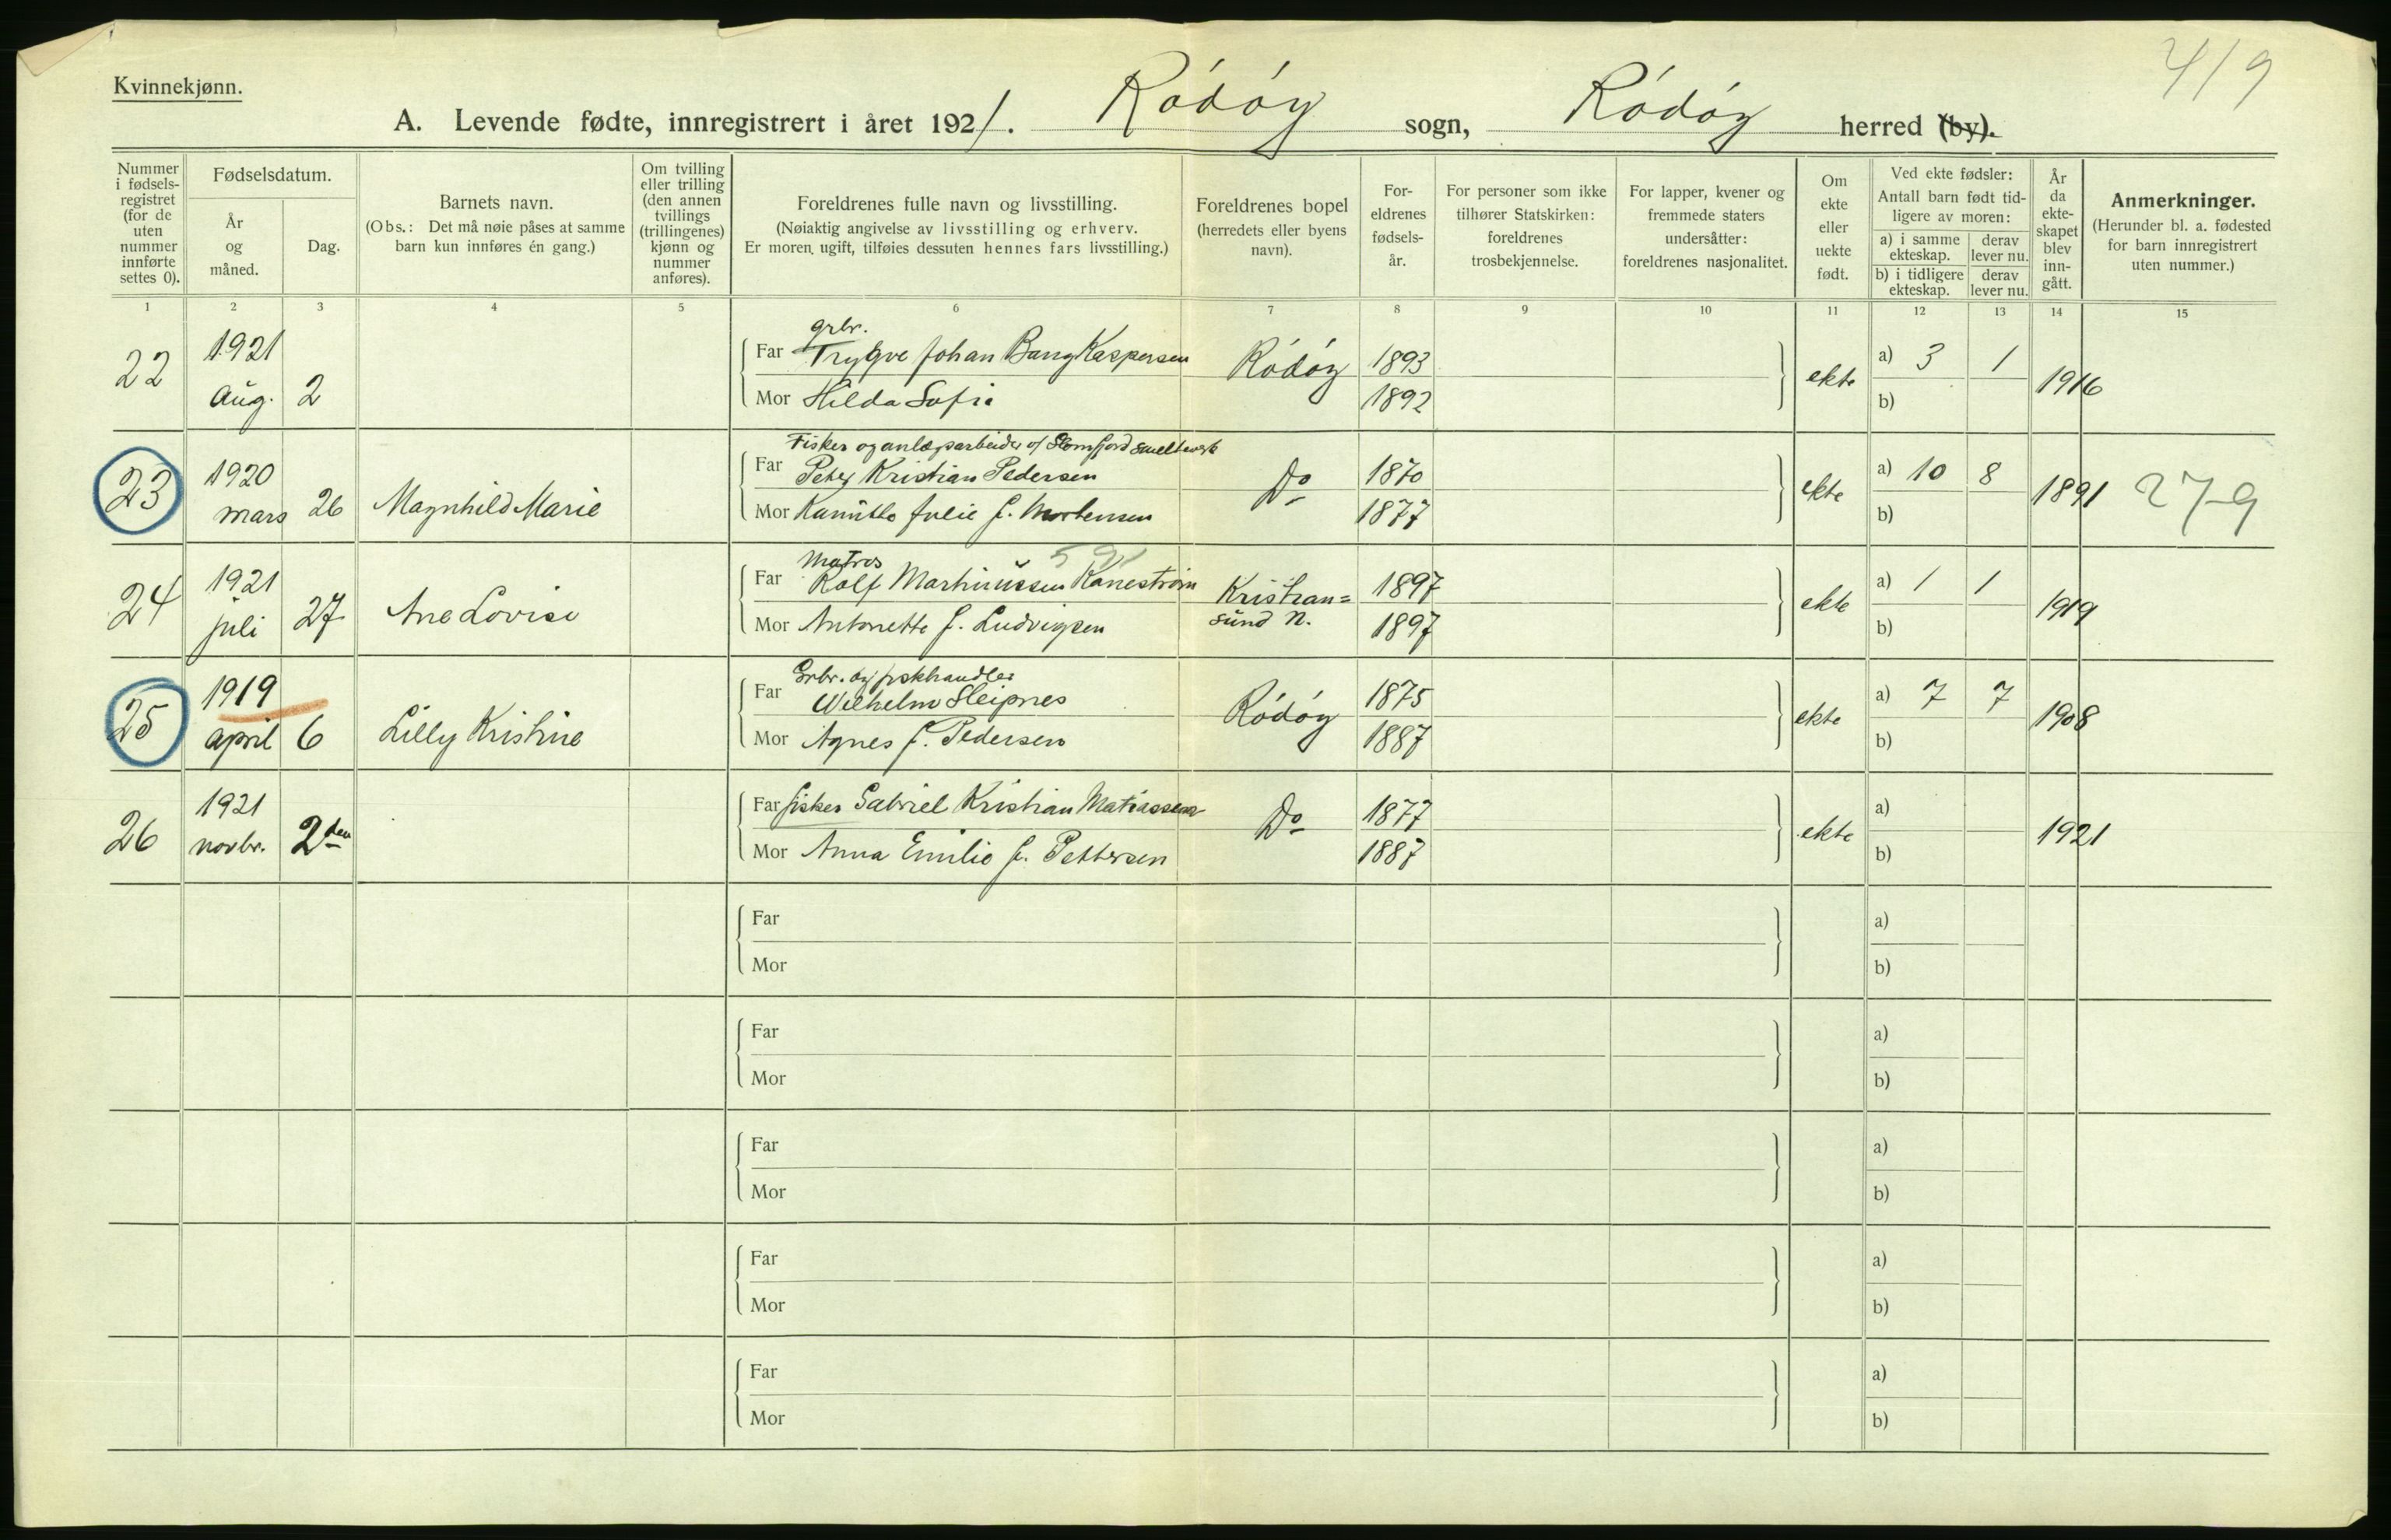 419
Kvinnekjønn.
A. Levende fødte, innregistrert i året 1921. Ródóy sogn, Ródóy herred (by).
Nummer i fødsels- registret (for de uten nummer innførte settes 0).
Fødselsdatum.
År og måned.
Dag.
Barnets navn.
(Obs.: Det må nøie påses at samme barn kun innføres én gang.)
Om tvilling eller trilling (den annen tvillings (trillingenes) kjønn og nummer anføres).
Foreldrenes fulle navn og livsstilling.
(Nøiaktig angivelse av livsstilling og erhverv.
Er moren ugift, tilføies dessuten hennes fars livsstilling.)
Foreldrenes bopel (herredets eller byens navn).
For- eldrenes fødsels- år.
For personer som ikke tilhører Statskirken: foreldrenes trosbekjennelse.
For lapper, kvener og fremmede staters undersåtter: foreldrenes nasjonalitet.
Om ekte eller uekte født.
Ved ekte fødsler:
Antall barn født tid- ligere av moren:
a) i samme ekteskap. derav lever nu.
b) i tidligere ekteskap. derav lever nu.
År da ekte- skapet blev inn- gått.
Anmerkninger.
(Herunder bl. a. fødested for barn innregistrert uten nummer.)
1 2 3 4 5 6 7 8 9 10 11 12 13 14 15
grbr.
22 1921 Aug. 2 Far Trygve Johan Bang Kaspersen Ródóy 1893 ekte a) 3 1 1916
Mor Hilda Sofie 1892 b)
Fisker og anlægsarbeider v/ Glomfjord smelteverk
23 1920 mars 26 Magnhild Marie Far Peter Kristian Pedersen Do 1870 ekte a) 10 8 1891 279
Mor Kamitte Julie f. Mortensen 1877 b)
Matros
24 1921 juli 27 Ane Lovise Far Rolf Martinussen Kanestrøm Kristian= sund N. 1897 ekte a) 1 1 1919
Mor Antonette f. Ludvigsen 1897 b)
Grbr. og fiskhandler
25 1919 april 6 Lilly Kristine Far Wilhelm Sleipnes Ródóy 1875 ekte a) 7 7 1908
Mor Agnes f. Pedersen 1887 b)
26 1921 novbr. 2den Far fisker Gabriel Kristian Matiassen Do 1877 ekte a) 1921
Mor Anna Emilie f. Pettersen 1887 b)
Far a)
Mor b)
Far a)
Mor b)
Far a)
Mor b)
Far a)
Mor b)
Far a)
Mor b)